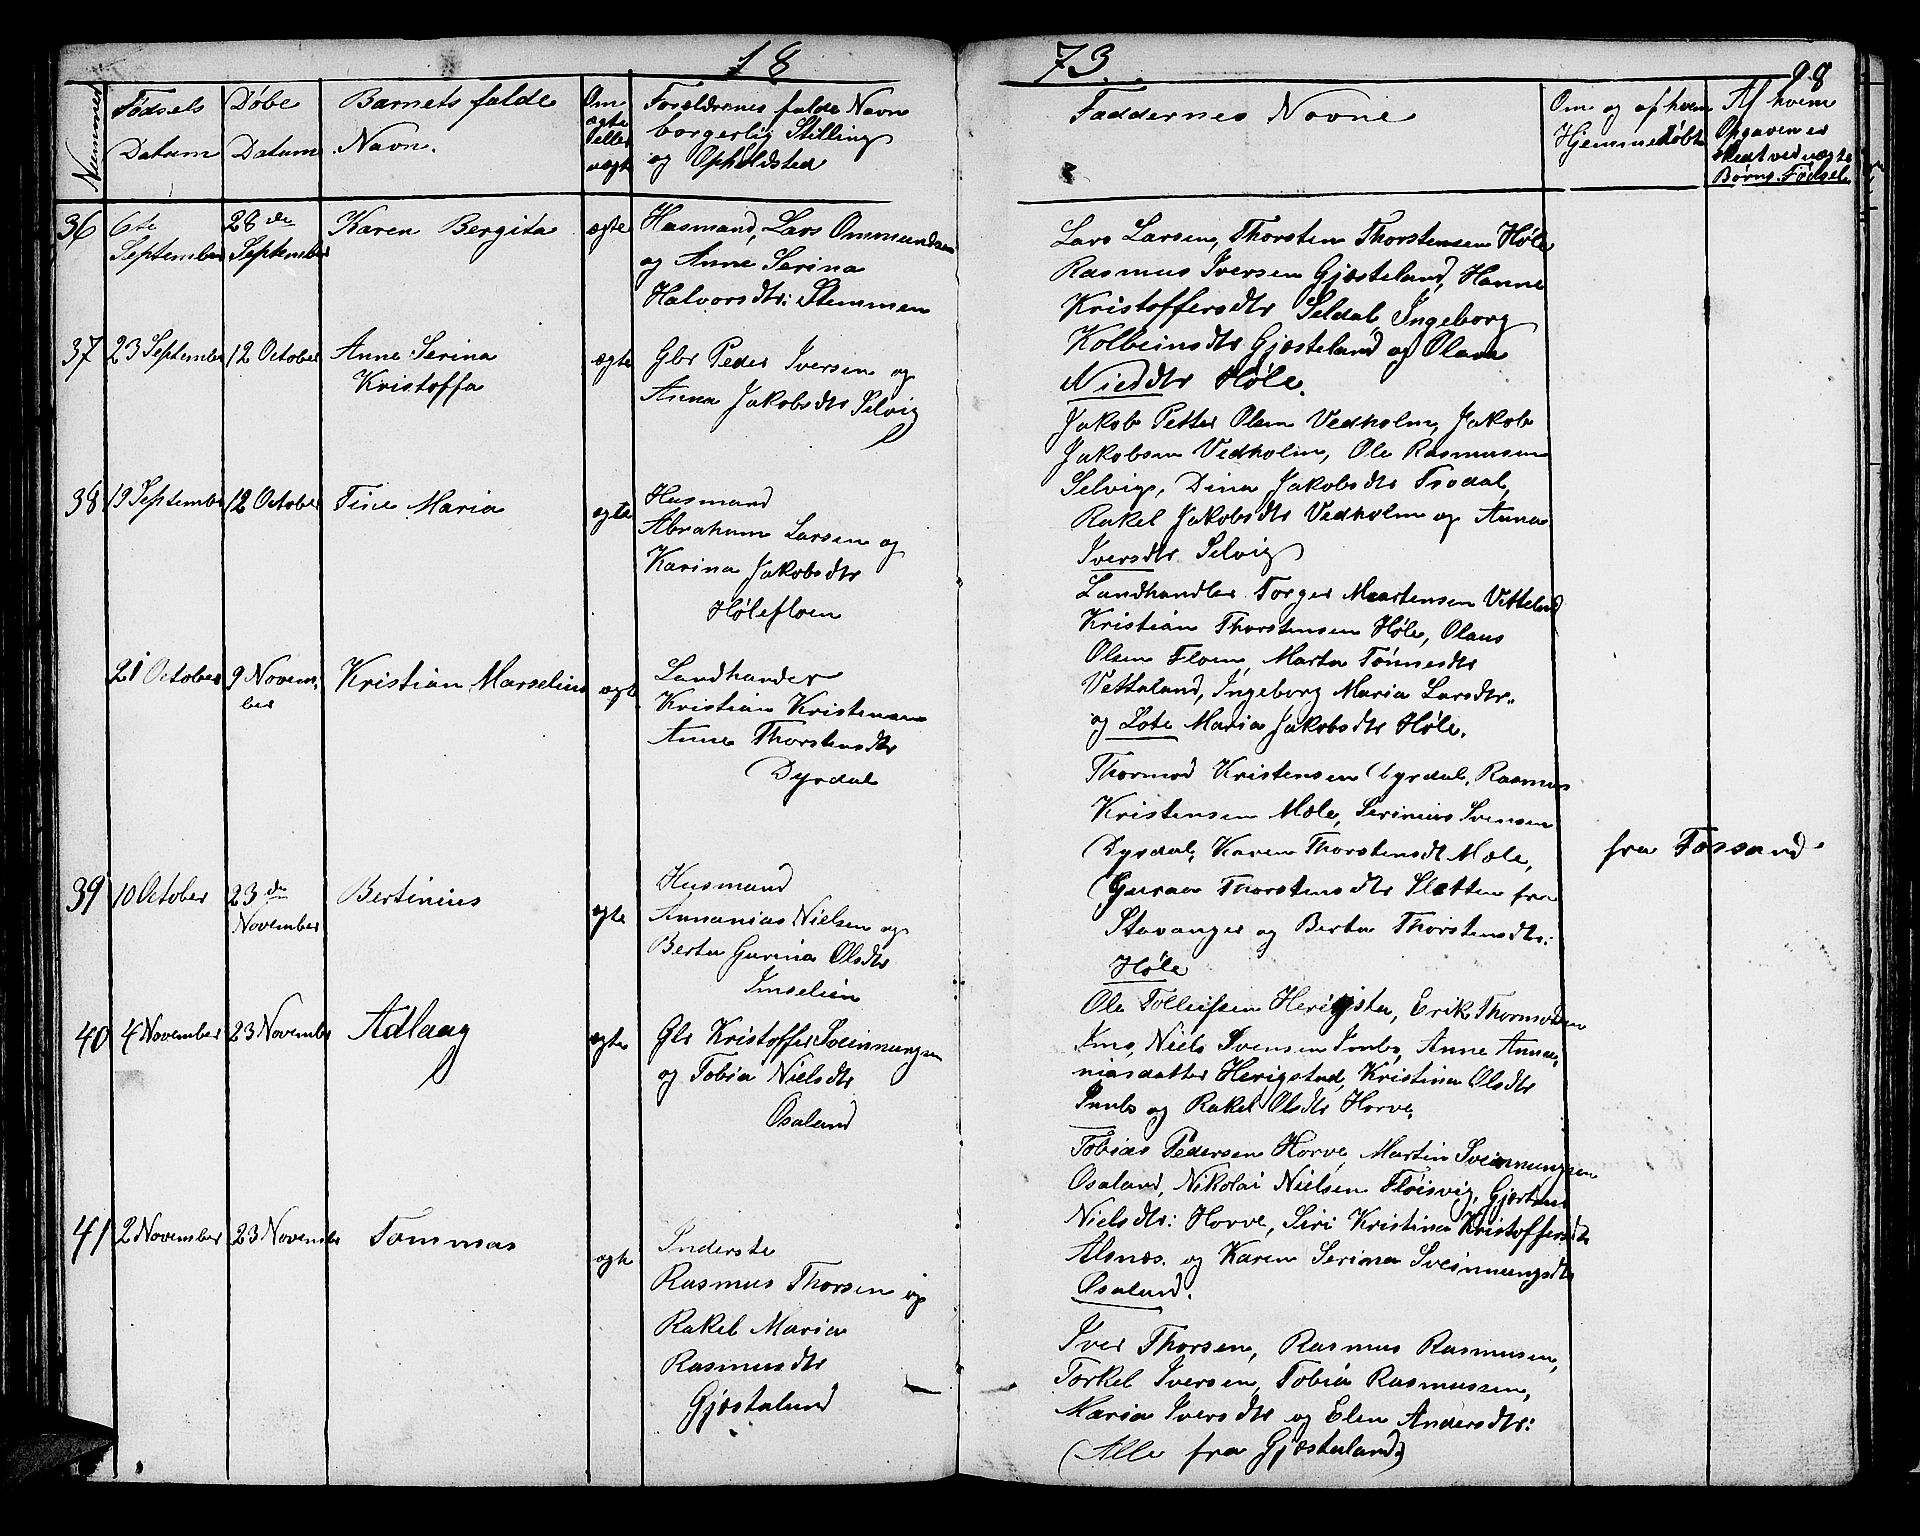 18
73.
98
Nummer
Fødsels
Datum
Døbe
Datum
Barnets fulde
Navn.
Om
ægte
eller
uægte
Forældrenes fulde Navn
borgerlig Stilling
og Opholdsted
Faddernes Navne
Om og af hvem
Hjemmedøbt
Af hvem
Opgaven er
skedt ved uægte
Børns Fødsel
36 6te
September
28de
September
Karen Bergita
ægte
Husmand, Lars Ommundsen
og Anne Serina
Halvorsdtr: Stemmen
37 23 September 12 October Anne Serina
Kristoffa
ægte
Gbr Peder Iversen og
Anna Jakobsdtr Selvig
38 19 September 12 October Tine Maria
ægte
Husmand
Abraham Larsen og
Karina Jakobsdtr
Hølefloen
21 October 9 Novem-
ber
Kristian Marselius
ægte
Landhander
Kristian Kristensen
Anne Thorstensdtr
Dyrdal
39 10 October 23de
November
Bertinius
ægte
Husmand
Annanias Nielsen og
Berta Gurina Olsdtr
Imselien
40 4 November 23 November Adlaag
ægte
Gbr Kristoffer Sveinungsen
og Tobia Nielsdtr
Osaland
41 2 November 23 November Tommas
ægte
Inderste
Rasmus Thorsen og
Rakel Maria
Rasmusdtr
Gjøstaland
Lars Larsen, Thorsten Thorstensen Høle
Rasmus Iversen Gjæsteland, Hanne
Kristoffersdtr Seldal Ingeborg
Kolbeinsdtr Gjæsteland og Olava
Høle.
Jakob Petter Olsen Vedholm, Jakob
Jakobsen Vedholm, Ole Rasmusen
Selvig, Dina Jakobsdtr Frodal,
Rakel Jakobsdtr Vedholm og Anna
Iversdtr Selvig
Landhandler Torger Maartensen Vetteland
Kristian Thorstensen Høle, Olaus
Olsen Floen, Marta Tønnesdtr
Vettaland, Ingeborg Maria Larsdtr.
og Lote Maria Jakobsdtr Høle.
Thormod Kristensen Dyrdal, Rasmus
Kristensen Mæle, Serinius Svensen
Dyrdal, Karen Thorstensdt Mæle,
Guraa Thorstensdtr Sletten fra
Stavanger og Berta Thorstensdtr:
Høle
fra Fossand
Ole Tolleifsen Herigsta, Erik Thormodsen
Ims, Niels Svensen Imbs, Anne Anna-
niasdatter Herigstad, Kristina Olsdtr
Imbs og Rakel Olsdtr Horve.
Tobias Pedersen Horve, Martin Sveinungsen
Osaland, Nikolai Nielsen Fløisvig, Gjertine
Nielsdtr: Horve, Siri Kristina Kristoffersdtr
Alsnæs. og Karen Serina Sveinungsdtr
Osaland.
Iver Thorsen, Rasmus Rasmusen,
Torkel Iversen, Tobia Rasmussen,
Maria Iversdtr og Elen Andersdtr:
(Alle fra Gjæsteland)